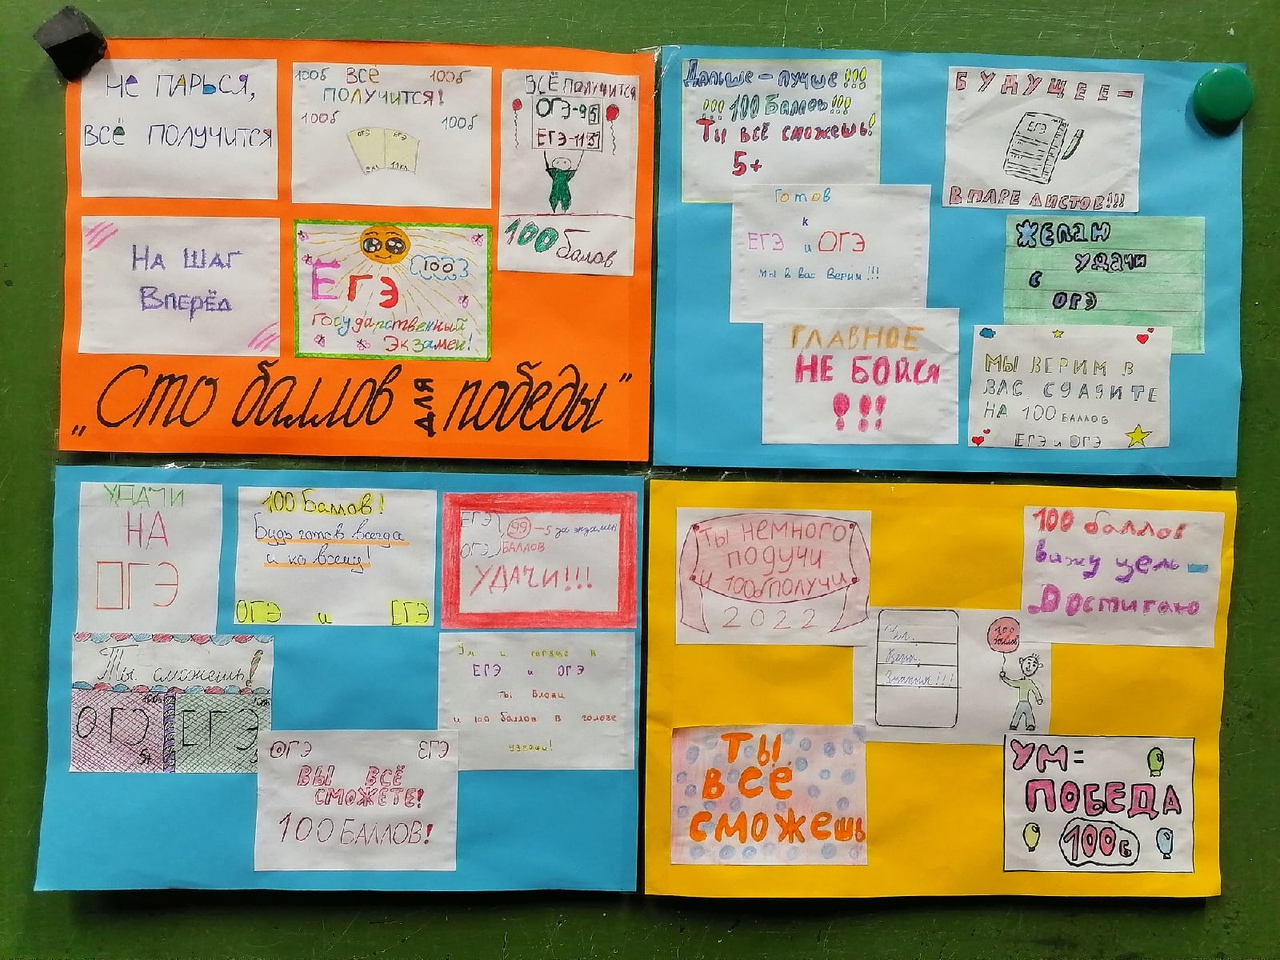 Не парься,
всё получится
100б всё 100б
получится!
100б 100б
ОГЭ ЕГЭ
9кл 11кл
ВСЁ ПОЛУЧИТСЯ
ОГЭ-9
ЕГЭ-11
100 балов
На шаг
Вперёд
100
ЕГЭ
Государственный
Экзамен!
„Сто баллов для победы”
Дальше - лучше!!!
!!! 100 Баллов!!!
Ты всё сможешь!
5+
БУДУЩЕЕ-
В ПАРЕ ЛИСТОВ!!!
Готов
к
ЕГЭ и ОГЭ
мы в вас верим!!!
Желаю
удачи
с
ОГЭ
ГЛАВНОЕ
НЕ БОЙСЯ
!!!
МЫ ВЕРИМ В
ВАС СДАДИТЕ
НА 100 БАЛЛОВ
ЕГЭ и ОГЭ
УДАЧИ
НА
ОГЭ
100 Баллов!
Будь готов всегда
и ко всему!
ОГЭ и ЕГЭ
ЕГЭ 99 -5 за экзамен
ОГЭ БАЛЛОВ
УДАЧИ!!!
Ты сможешь!
ОГЭ 100б
5+
ЕГЭ
Ум и сердце к
ЕГЭ и ОГЭ
ты вложи
и 100 баллов в голове
удержи!
ОГЭ ЕГЭ
ВЫ ВСЁ
СМОЖЕТЕ!
100 БАЛЛОВ!
ТЫ НЕМНОГО
ПОДУЧИ
И 100б ПОЛУЧИ
2022
100 баллов
вижу цель -
Достигаю
100
баллов
Ты
всё
сможешь
УМ=
ПОБЕДА
100б